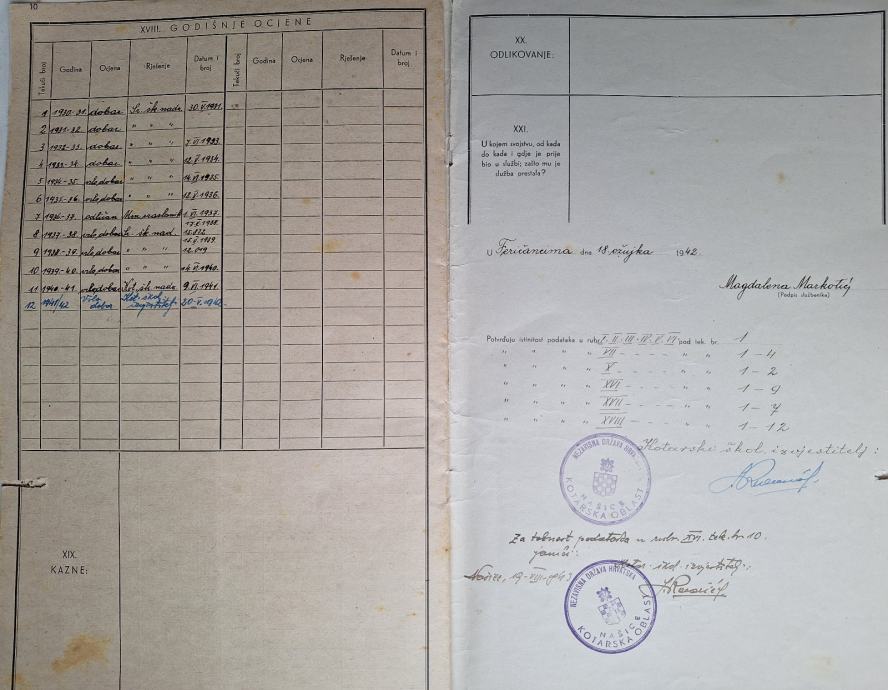 10
XVIII. GODIŠNJE OCJENE
Tekući broj Godina Ocjena Rješenje Datum i broj Tekući broj Godina Ocjena Rješenje Datum i broj
1 1930-31. dobar Sr. šk. nadz. 30.V.1931.
2 1931-32. dobar " " "
3 1932-33. dobar " " " 7.VI.1933.
4 1933-34. dobar " " " 12.V.1934.
5 1934-35. vrlo dobar " " " 14.VI.1935.
6 1935-36. vrlo dobar " " " 12.V.1936.
7 1936-37. odličan 1.VI.1937.
8 1937-38. vrlo dobar Sr. šk. nad. 17.V.1938.
9 1938-39. vrlo dobar " " "
10 1939-40. vrlo dobar " " " 14.V.1940.
11 1940-41. vrlo dobar Kot. šk. nadz. 9.VI.1941.
12 1941/42 Vrlo dobar Kot. škol. izvjestitelj 20-V-1942.
XIX.
KAZNE:
XX.
ODLIKOVANJE:
XXI.
U kojem svojstvu, od kada
do kada i gdje je prije
bio u službi; zašto mu je
služba prestala?
U Feričancima dne 18 ožujka 1942.
Magdalena Markolić
(Potpis službenika)
Potvrđuju istinitost podataka u rubr. I-II-III-IV-V-VI pod tek. br. 1
" " " " VII - - - " " 1-4
" " " " X - - - " " 1-2
" " " " XVI - - - " " 1-9
" " " " XVII - - - " " 1-7
" " " " XVIII - - - " " 1-12
Kotarski škol. izvjestitelj:
NEZAVISNA DRŽAVA HRVATSKA
KOTARSKA OBLAST
NAŠICE
Za točnost podataka u rubr. XVI. tek. br. 10.
jamči:
Kotar. škol. izvjestitelj:
Našice, 19-VIII-1943
NEZAVISNA DRŽAVA HRVATSKA
KOTARSKA OBLAST
NAŠICE